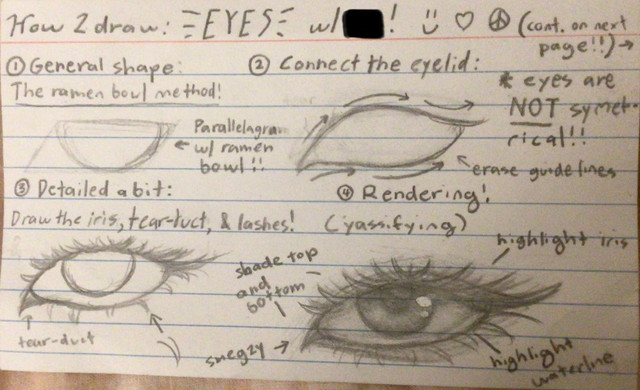 How 2 draw: EYES w/ ! :) ♡ ☮ (cont. on next page!!) →
① General shape:
The ramen bowl method!
Parallelagram
w/ ramen
bowl!!
② Connect the eyelid:
* eyes are
NOT symet-
rical!!
erase guidelines
③ Detailed a bit:
Draw the iris, tear-duct, & lashes!
tear-duct
④ Rendering!
(yassifying)
highlight iris
shade top
and
bottom
highlight
waterline